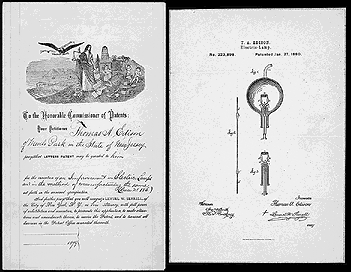 To the Honorable Commissioner of Patents:
Your Petitioner Thomas A. Edison
of Menlo Park in the State of New Jersey
prays that LETTERS PATENT may be granted to him
for the invention of an Improvement in Electric Lamps
and in the method of manufacturing the same
set forth in the annexed specification.
And further prays that you will recognize LEMUEL W. SERRELL, of
the City of New York, N. Y., as his Attorney, with full power
of substitution and revocation, to prosecute this application, to make alterations
and amendments therein, to receive the Patent, and to transact all
business in the Patent Office connected therewith.
T. A. EDISON.
Electric-Lamp.
No. 223,898.
Patented Jan. 27, 1880.
Fig. 1
Fig. 2
Fig. 3
Witnesses
Inventor
Thomas A. Edison
Lemuel W. Serrell